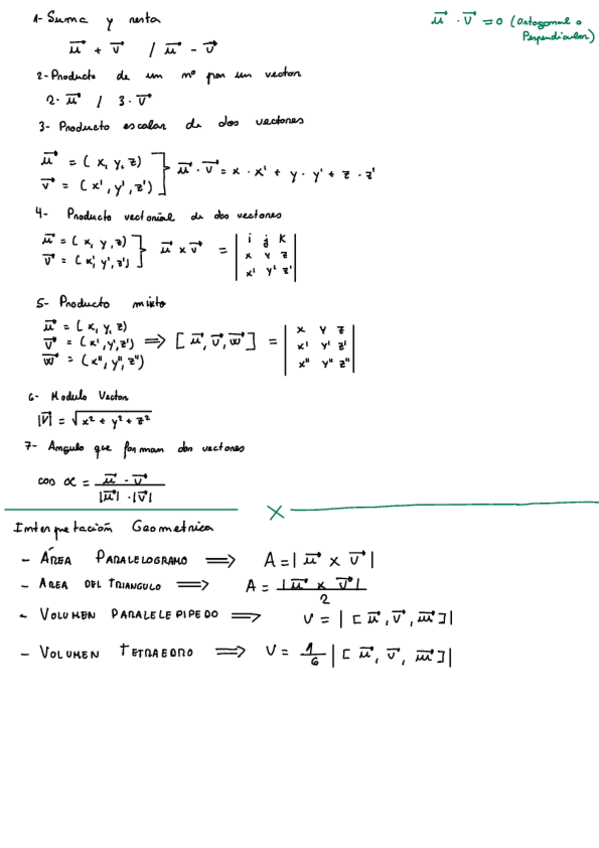 1- Suma y resta
u⃗ · v⃗ = 0 (Ortogonal o
Perpendicular)
u⃗ + v⃗ / u⃗ - v⃗
2- Producto de un nº por un vector
2·u⃗ / 3·v⃗
3- Producto escalar de dos vectores
u⃗ = (x, y, z)
v⃗ = (x', y', z')
u⃗ · v⃗ = x · x' + y · y' + z · z'
4- Producto vectorial de dos vectores
u⃗ = (x, y, z)
v⃗ = (x', y', z')
u⃗ x v⃗ = | i j k
x y z
x' y' z' |
5- Producto mixto
u⃗ = (x, y, z)
v⃗ = (x', y', z') ⟹ [u⃗, v⃗, w⃗] =
w⃗ = (x", y", z")
| x y z
x' y' z'
x" y" z" |
6- Modulo Vector
|v⃗| = √x² + y² + z²
7- Angulo que forman dos vectores
cos α = u⃗ · v⃗ / |u⃗| · |v⃗|
X
Interpretación Geometrica
- ÁREA PARALELOGRAMO ⟹ A = | u⃗ x v⃗ |
- AREA DEL TRIANGULO ⟹ A = | u⃗ x v⃗ | / 2
- VOLUMEN PARALELEPIPEDO ⟹ V = | [u⃗, v⃗, w⃗] |
- VOLUMEN TETRAEDRO ⟹ V = 1/6 | [u⃗, v⃗, w⃗] |